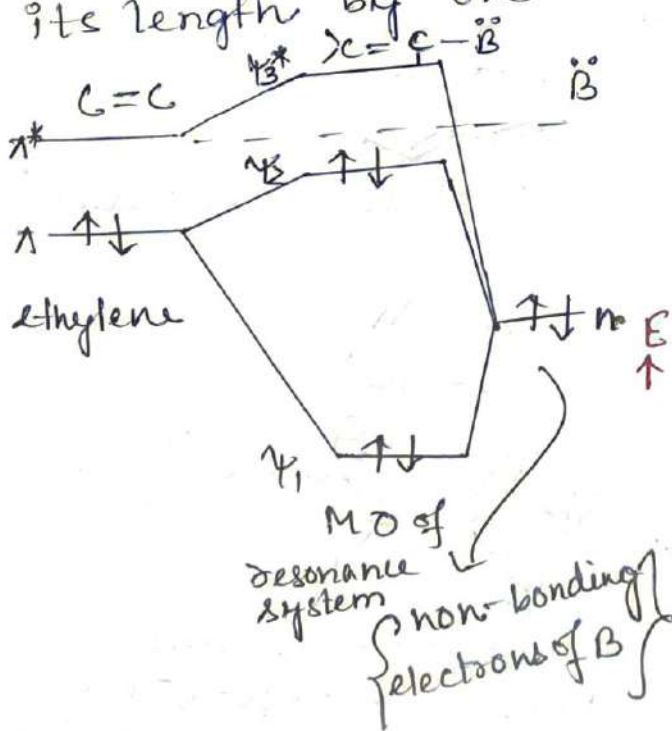 its length by one
ψ3* >C=C-B̈
C=C B̈
π*
ψ2 ↑↓
π ↑↓
ethylene ↑↓ n E
↑
ψ1 ↑↓
MO of
resonance
system
{non-bonding
electrons of B}